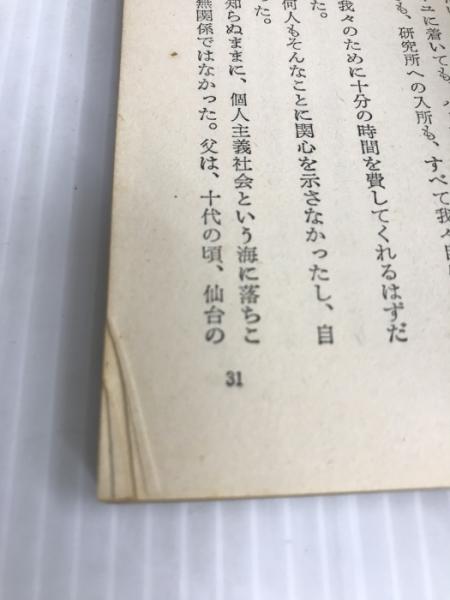 ユに着いても、
も、研究所への入所も、すべて我々
我々のために十分の時間を費してくれるはずだ
た。
何人もそんなことに関心を示さなかったし、自
った。
知らぬままに、個人主義社会という海に落ちこ
無関係ではなかった。父は、十代の頃、仙台の
31